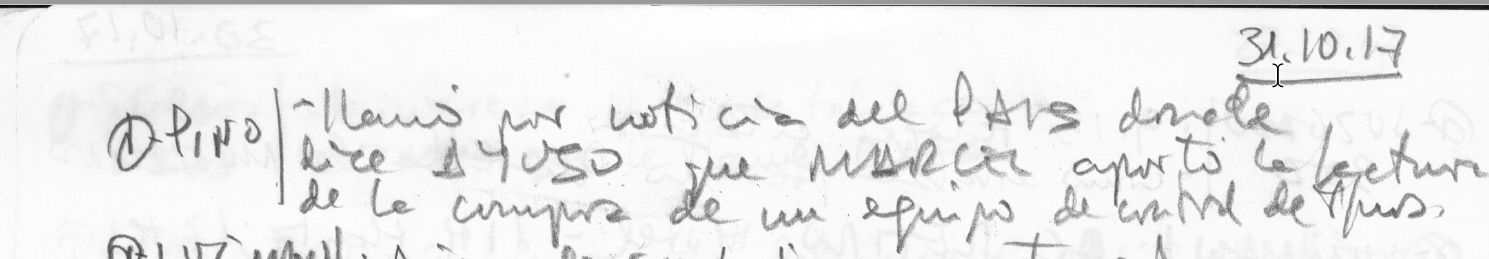 31.10.17
① PINO | - llamó por noticia del PAIS donde
dice AYUSO que MARCEL aportó la factura
de la compra de un equipo de control de tfnos.